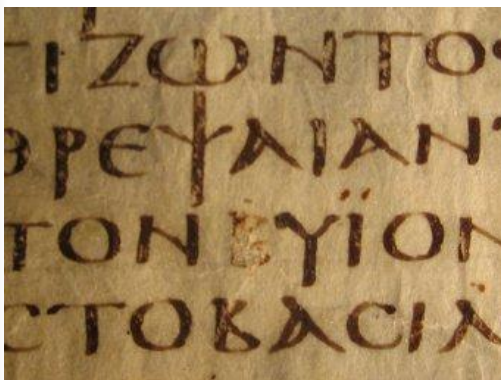 ΤΙΖΩΝΤΟϹ
ΘΡΕΨΑΙΑΝΤ
ΤΟΝΥΪΟΝ
ϹΤΟΒΑϹΙΛ